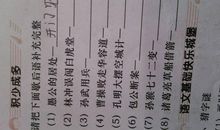 积少成多
请把下面歇后语补充完整
(1) 愚公的居处—开门
(2) 林冲误闯白虎堂—
(3) 孙武用兵—
(4) 曹操败走华容道—
(5) 孔明大摆空城计—
(6) 包公断案—
(7) 孙猴七十二变—
(8) 诸葛亮草船借箭—
语文基础快乐城堡
猜字谜